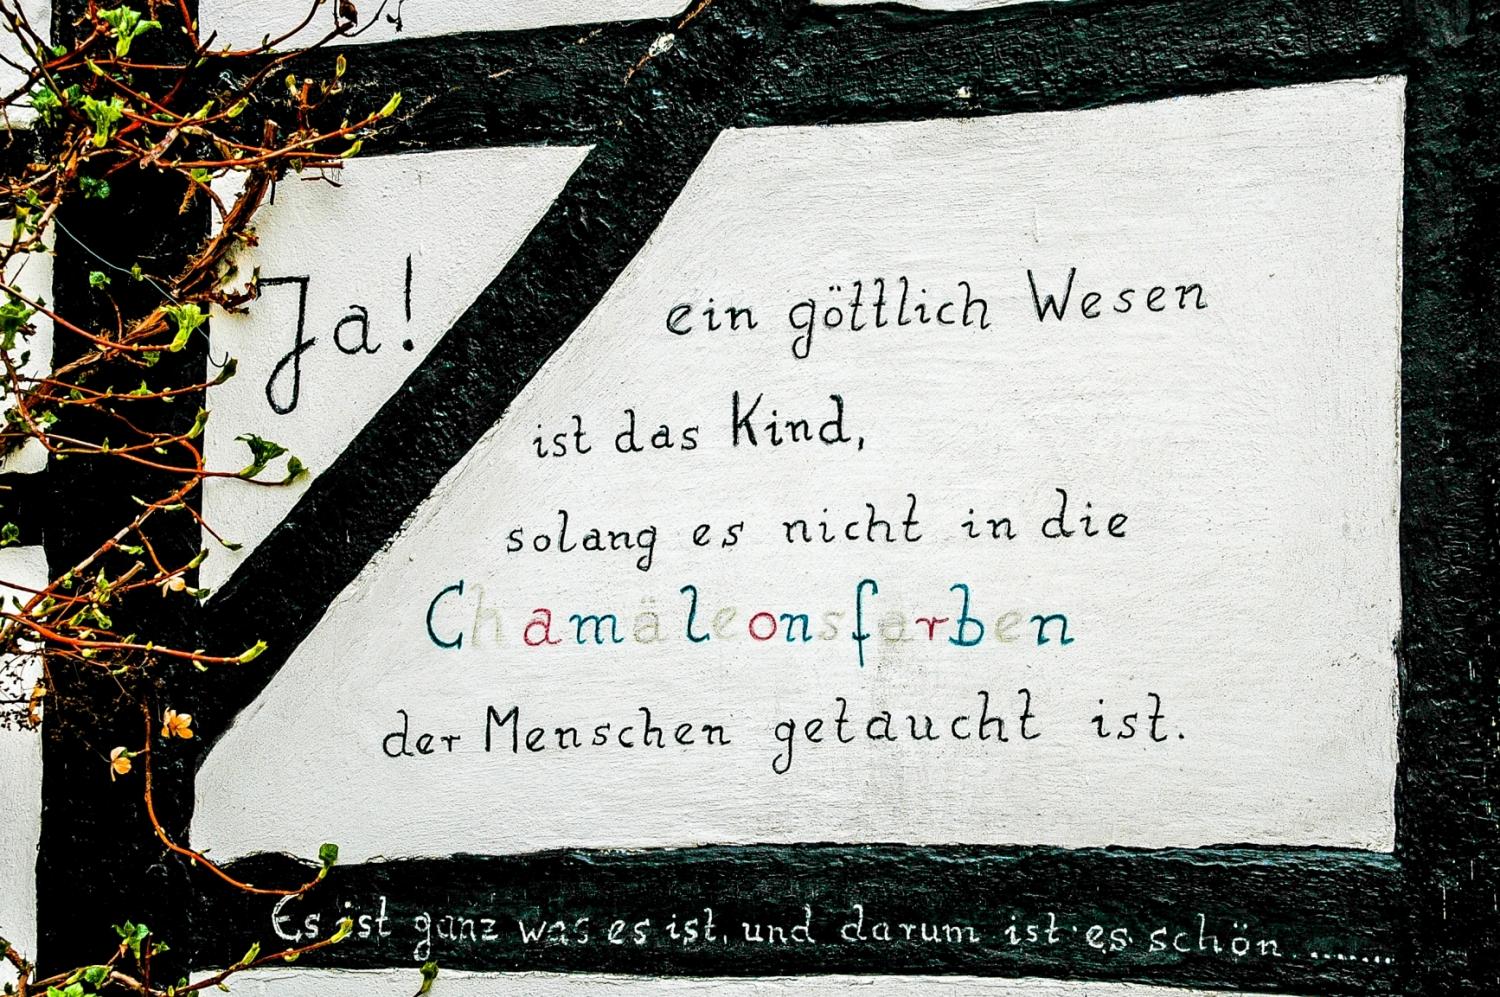 Ja! ein göttlich Wesen
ist das Kind,
solang es nicht in die
Chamäleonsfarben
der Menschen getaucht ist.
Es ist ganz was es ist, und darum ist es schön.......